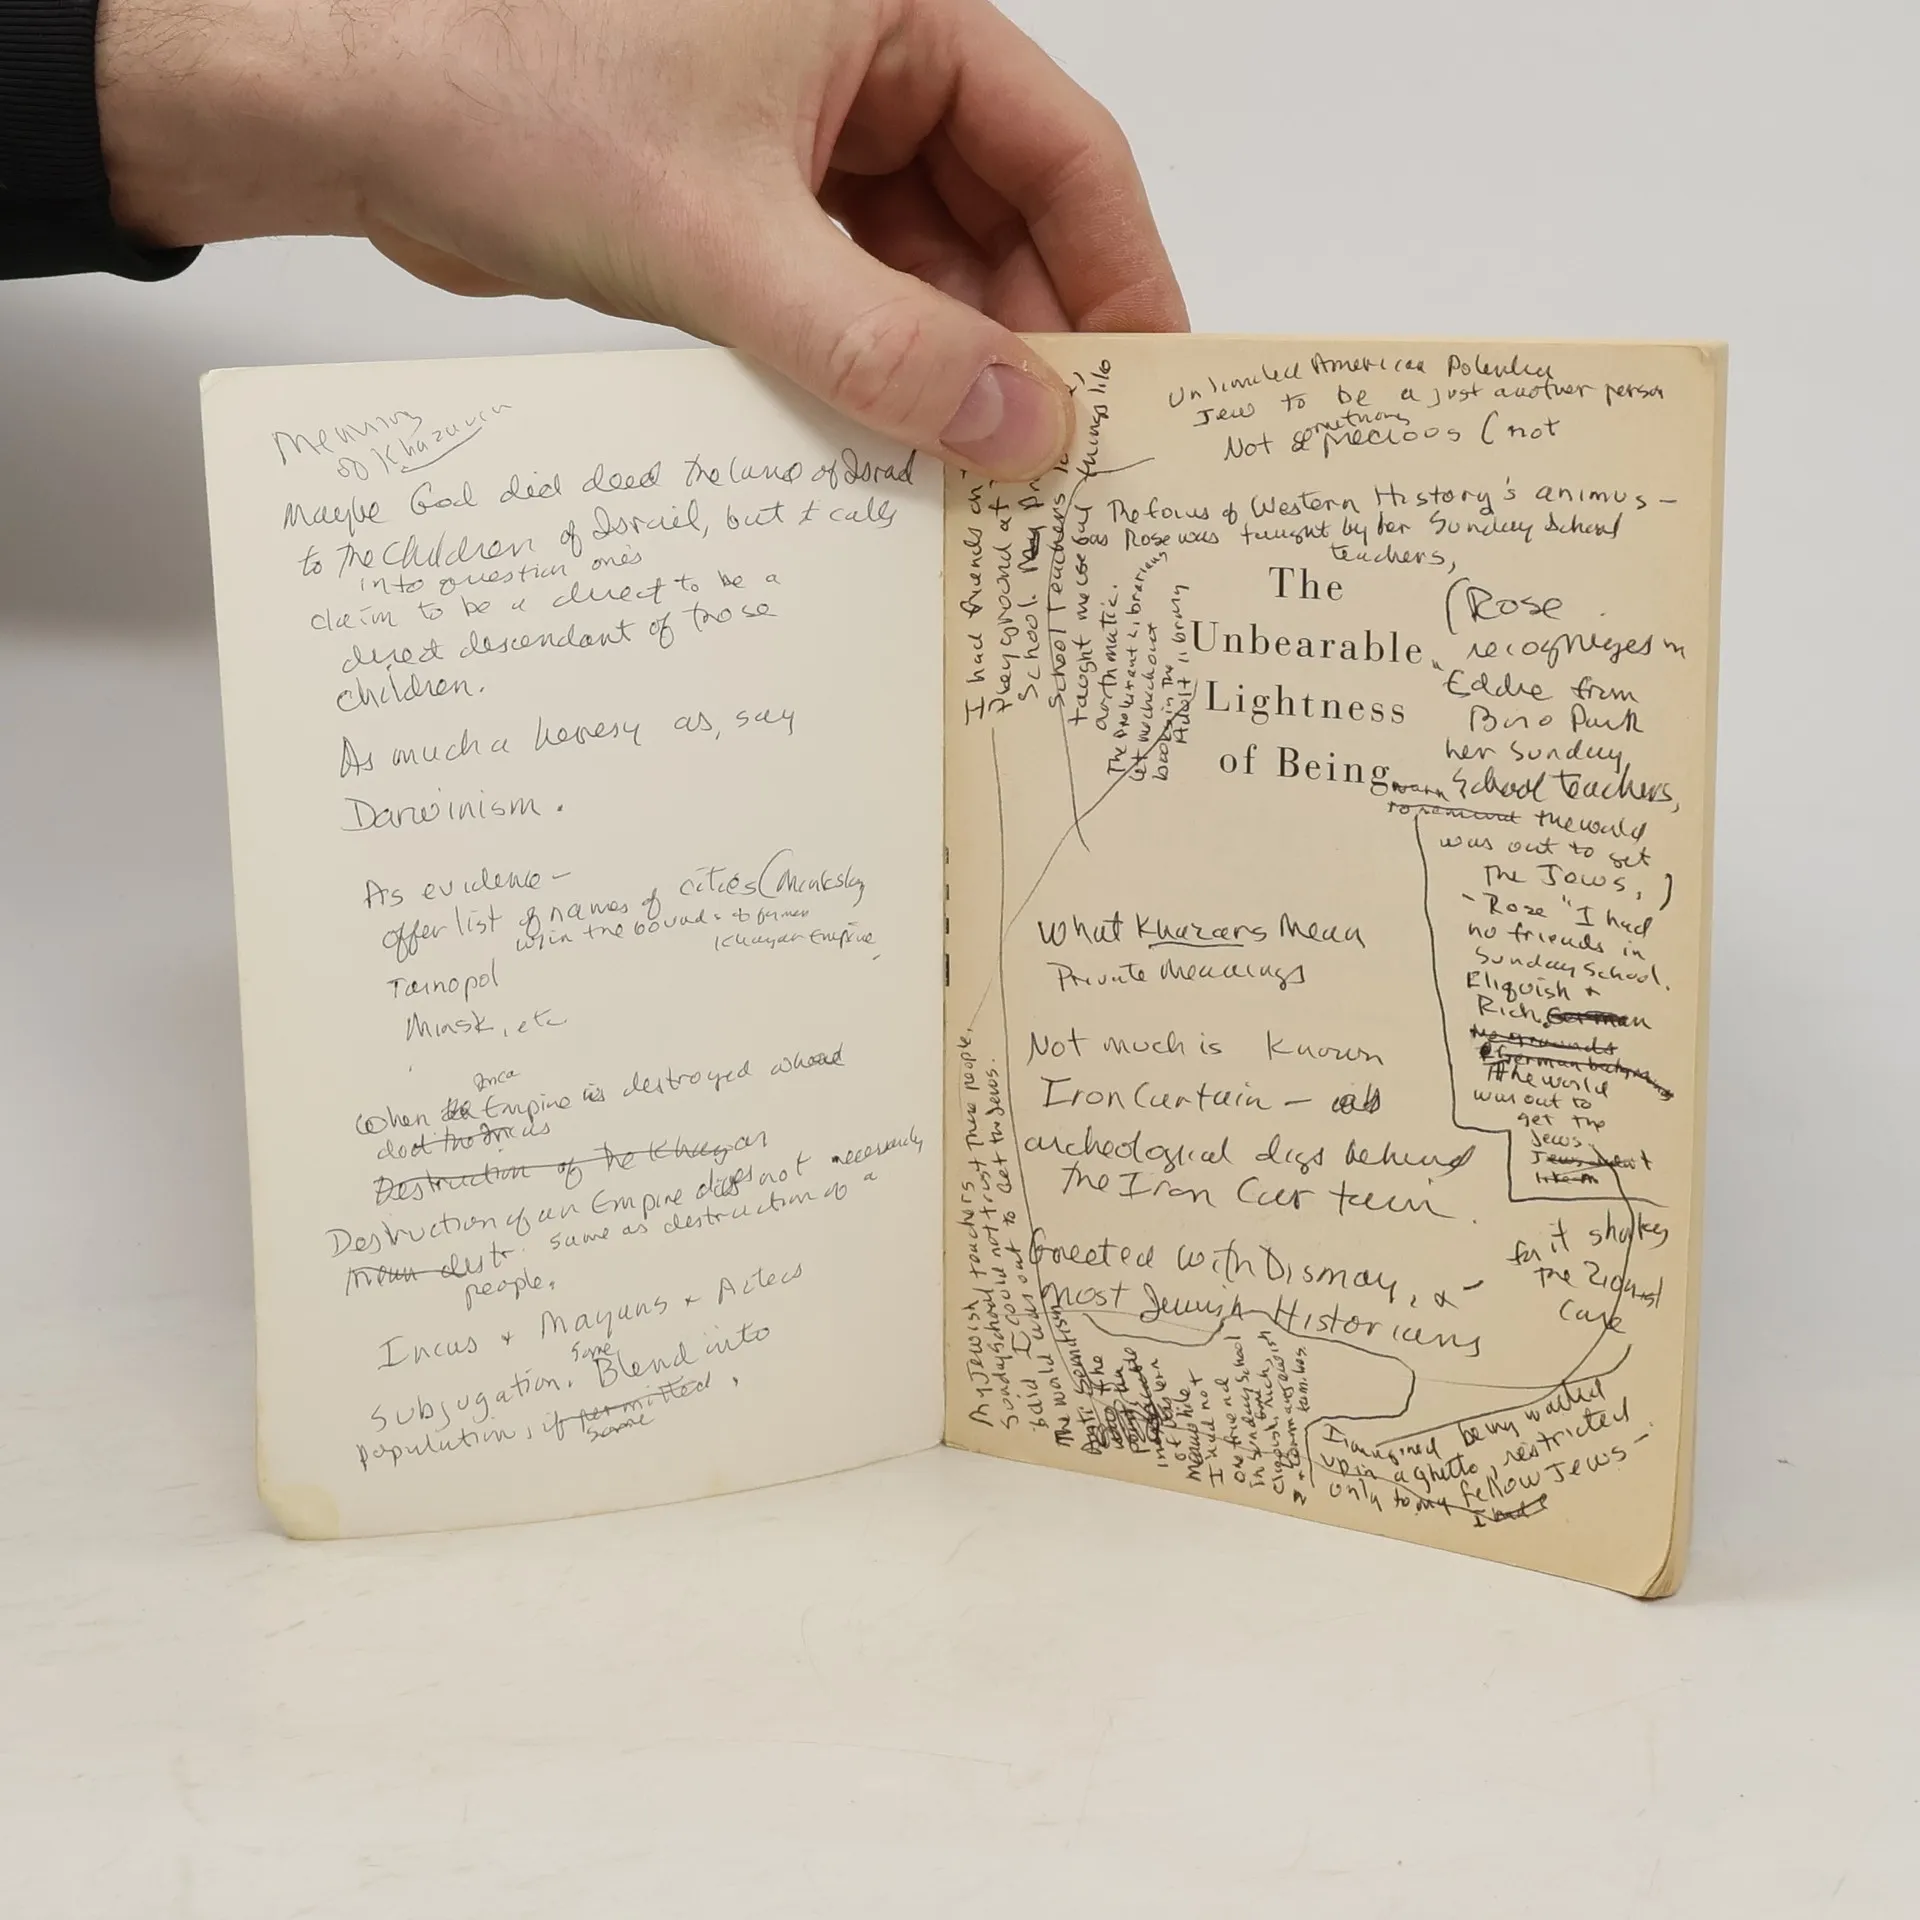 Meaning
of Khazaria
Maybe God did deed the land of Israel
to the Children of Israel, but it calls
into question one's
claim to be a direct to be a
direct descendant of those
children.
As much a heresy as, say
Darwinism.
As evidence -
offer list of names of cities (Minksky
w/in the bounds of former
Khazar Empire,
Tarnopol
Minsk, etc
Inca
When Empire is destroyed
did the Incas
Destruction of the Khazar
Destruction of an Empire does not necessarily
mean destr. same as destruction of a
people.
Incas + Mayans + Aztecs
subjugation. Some Blend into
population, if permitted,
some
Unlimited American Potential
Jew to be a just another person
something
Not precious (not
The focus of Western History's animus -
as Rose was taught by her Sunday School
teachers,
The
Unbearable
Lightness
of Being
(Rose
recognizes in
Eddie from
Park
her Sunday
School teachers,
warn
to remind the world
was out to get
the Jews,)
- Rose "I had
no friends in
Sunday School.
Cliquish +
Rich, German
German
the world
was out to
get the
Jews
I had friends on
playground at
School.
School Teachers
taught me useful things like
arithmatic.
The Proletariat Librarians
let me check out
books in the
Adult library
What Khazars Mean
Private Meanings
Not much is Known
Iron Curtain -
archeological digs behind
the Iron Curtain.
Greeted with Dismay, & -
most Jewish Historians
for it shakes
the Zionist
Case
My Jewish teachers
Sunday School
said I could not trust these people.
The world was out to get the Jews.
Anti Semitism
of life
Meanwhile
I had not
one friend
in Sunday School
cliquish, rich,
I imagined being walled
up in a ghetto, restricted
only to my fellow Jews -
I had